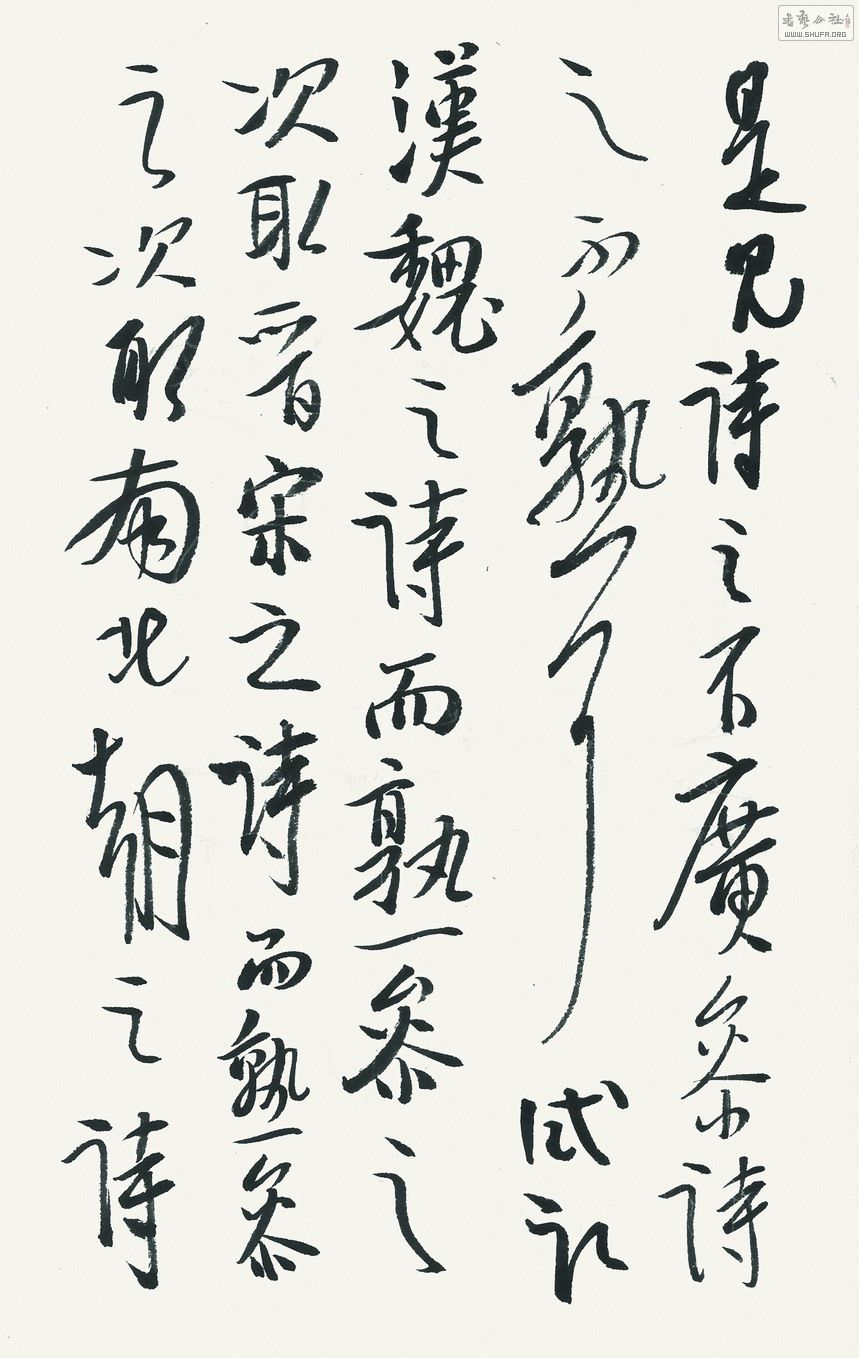 是見詩之不廣參詩
之不熟耳試取
漢魏之詩而熟參之
次取晉宋之詩而熟參
之次取南北朝之詩
WWW.SHUFA.ORG